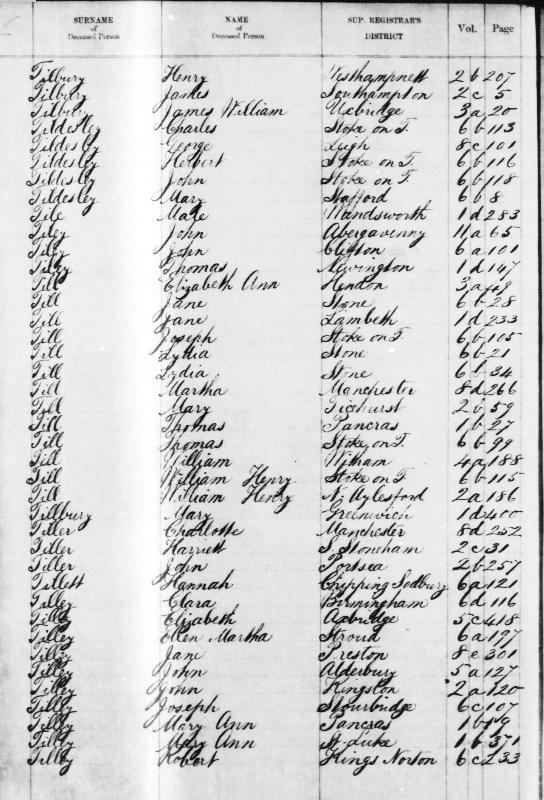 SURNAME of Deceased Person NAME of Deceased Person SUP. REGISTRAR'S DISTRICT Vol. Page
Tilbury Henry Westhampnett 2 b 207
Tilbury James Southampton 2 c 5
Tilbury James William Uxbridge 3a 20
Tildesley Charles Stoke on T. 6 b 113
Tildesley George Leigh 8 c 101
Tildesley Herbert Stoke on T. 6 b 116
Tildesley John Stoke on T. 6 b 118
Tildesley Mary Stafford 6 b 8
Tile Male Wandsworth 1 d 283
Tiley John Abergavenny 11a 65
Tiley John Clifton 6 a 101
Tiley Thomas Newington 1 d 147
Till Elizabeth Ann Hendon 3a 49
Till Jane Stone 6 b 28
Till Jane Lambeth 1 d 233
Till Joseph Stoke on T. 6 b 105
Till Lydia Stone 6 b 21
Till Lydia Stone 6 b 34
Till Martha Manchester 8 d 266
Till Mary Ticehurst 2 b 59
Till Thomas Pancras 1 b 27
Till Thomas Stoke on T. 6 b 99
Till William Witham 4a 188
Till William Henry Stoke on T 6 b 115
Till William Henry N. Aylesford 2a 186
Tillbury Mary Greenwich 1 d 400
Tiller Charlotte Manchester 8 d 252
Tiller Harriett S. Stoneham 2 c 31
Tiller John Portsea 2 b 257
Tillett Hannah Chipping Sodbury 6a 121
Tilley Clara Birmingham 6 d 116
Tilley Elizabeth Axbridge 5 c 418
Tilley Ellen Martha Stroud 6 a 197
Tilley Jane Preston 8 e 301
Tilley John Alderbury 5 a 127
Tilley John Kingston 2 a 120
Tilley Joseph Stourbridge 6 c 107
Tilley Mary Ann Pancras 1 b 19
Tilley Mary Ann St. Luke 1 b 371
Tilley Robert Kings Norton 6 c 233